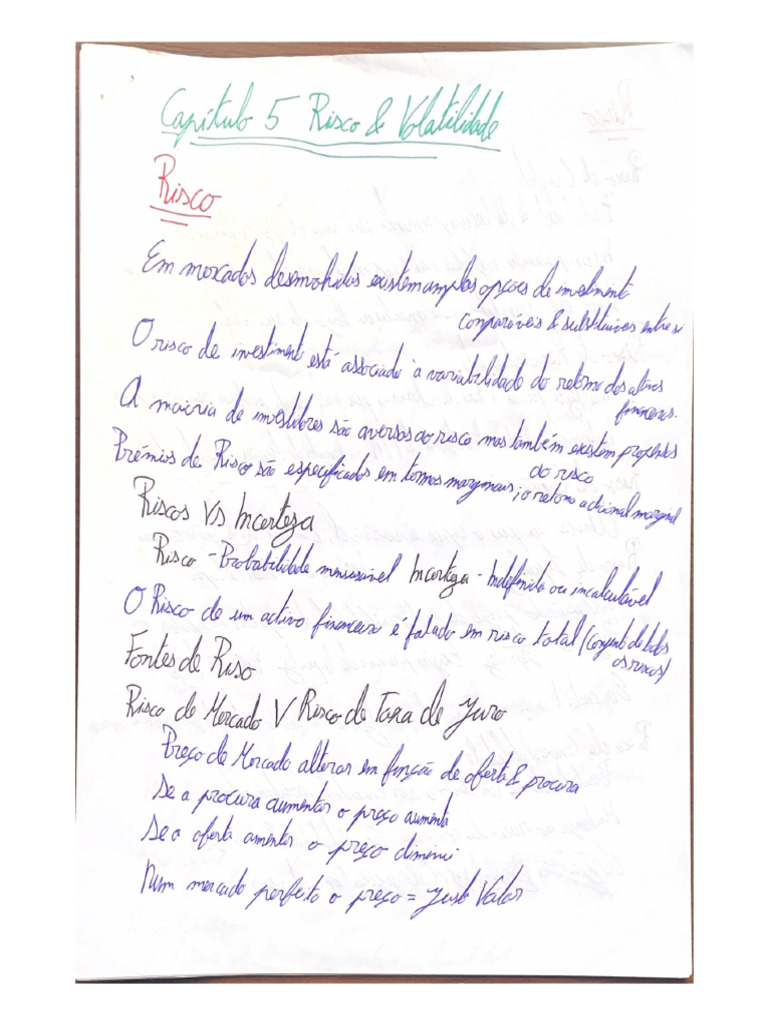 Capítulo 5 Risco & Volatilidade
Risco
Em mercados desenvolvidos existem amplas opções de investimento
comparáveis & substituivos entre si
O risco de investiment está associado à variabilidade do retorno dos ativos
financeiros.
A maioria de investidores são aversos ao risco mas também existem propensos
ao risco
Prémios de Risco são especificados em termos marginais; o retorno adicional marginal
Riscos Vs Incerteza
Risco - Probabilidade mensurável Incerteza - Indefinida ou incalculável
O Risco de um activo financeiro é falado em risco total (conjunto de todos
os riscos)
Fontes de Riso
Risco de Mercado V Risco de Taxa de Juro
Preço de Mercado alterar em função de oferta & procura
Se a procura aumentar o preço aumenta
Se a oferta aumentar o preço diminui
Num mercado perfeito o preço = Justo Valor